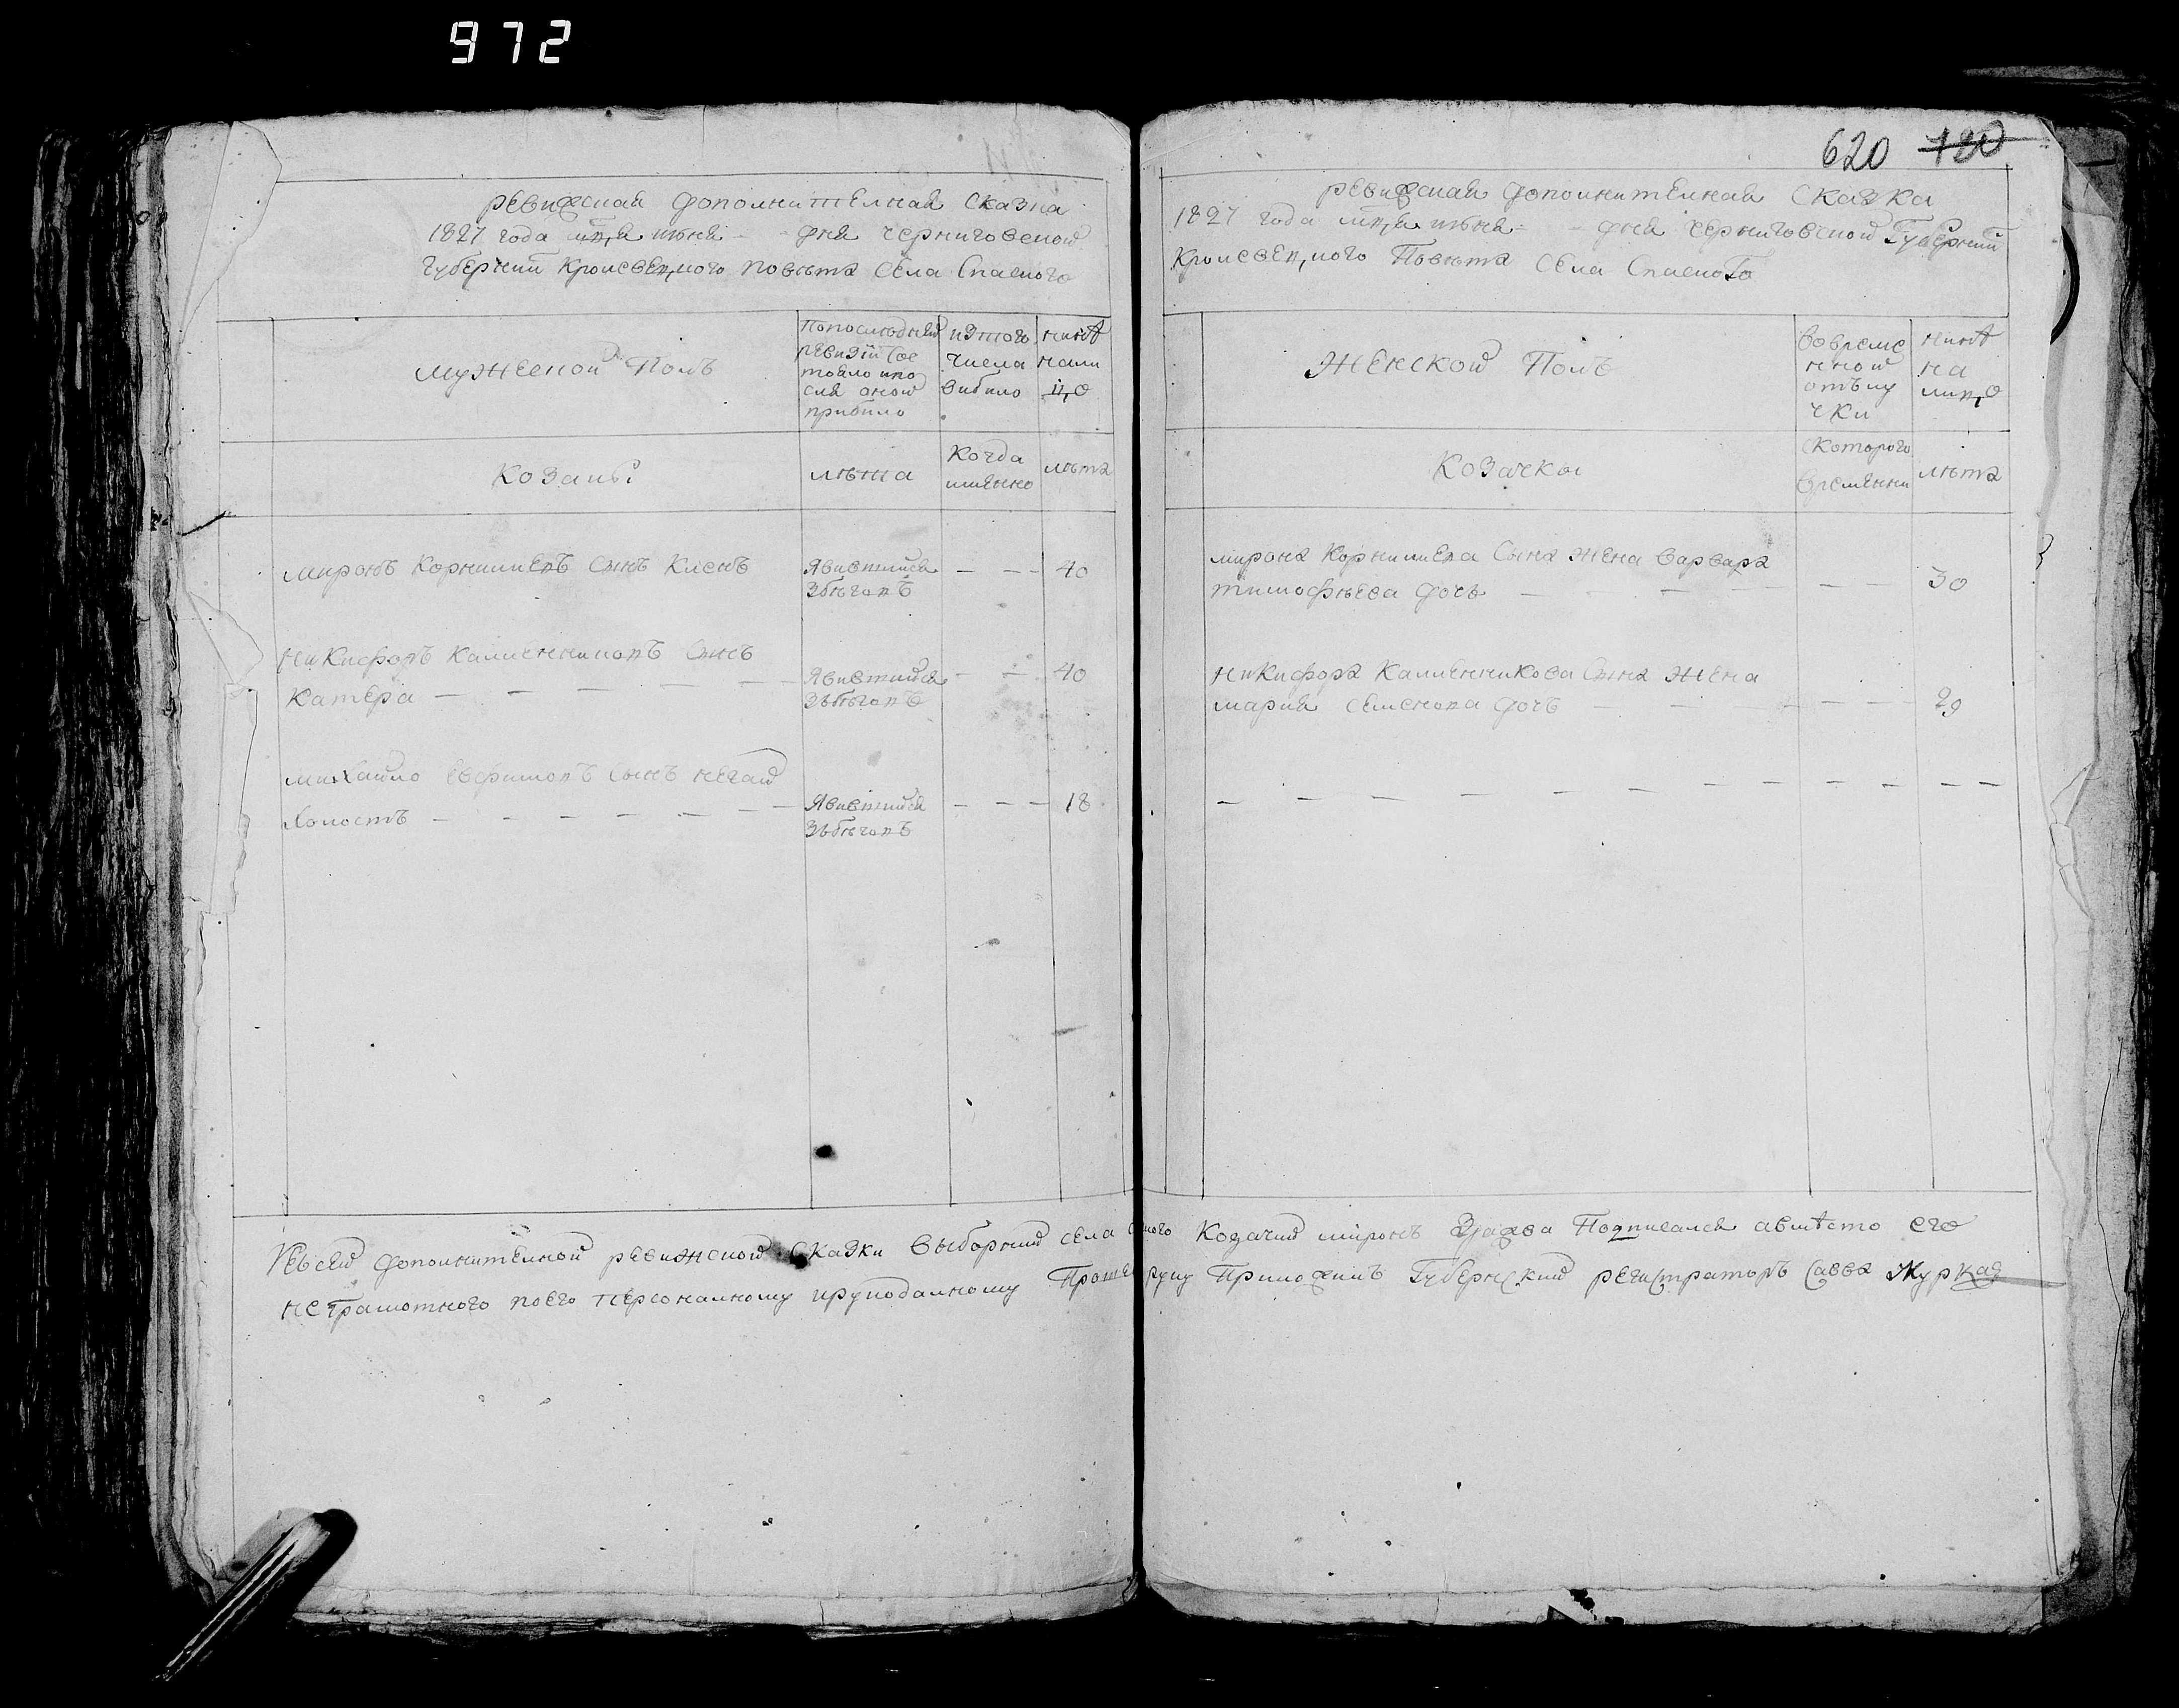 972
620 180
ревизская дополнителная сказка
1827 года мца июня - - дня черниговской
губернии Кролевецкого повета села Спаского
мужеской Полъ
Попоследней
ревизіи сос
тояло ипо
сля оной
прибило
изтого
числа
вибило
нинѣ
нали
цо
Козаки
лѣта
Когда
имянно
лѣта
миронъ Корнилиевъ Синъ Кленъ
Явившийся
Збѣговъ
- - - 40
никифоръ Калиенниковъ Синъ
Катера
Явившийся
Зъбѣговъ
- - 40
михайло Евфимовъ Сынъ негай
холостъ
Явившийся
Зъбѣговъ
- - - 18
ревизская дополнителная Сказка
1827 года мца июня - дня Черниговской Губернии
Кролевецкого Повѣта Села Спаского
Женской Полъ
вовреме
нной
отълу
чки
нинѣ
на
лицо
Козачки
Скоторого
времянни
лѣта
мирона Корнилиева Сина жена варвара
тимофѣева дочь
30
никифора Калиенникова Сина жена
мария Семенова дочъ
29
Ксей дополнителной ревижской Сказки выборний села Козачий миронъ Подписался авмѣсто его
неграмотного поего персоналному ируподалному Приложилъ Губернский регистраторъ Савва Журкав